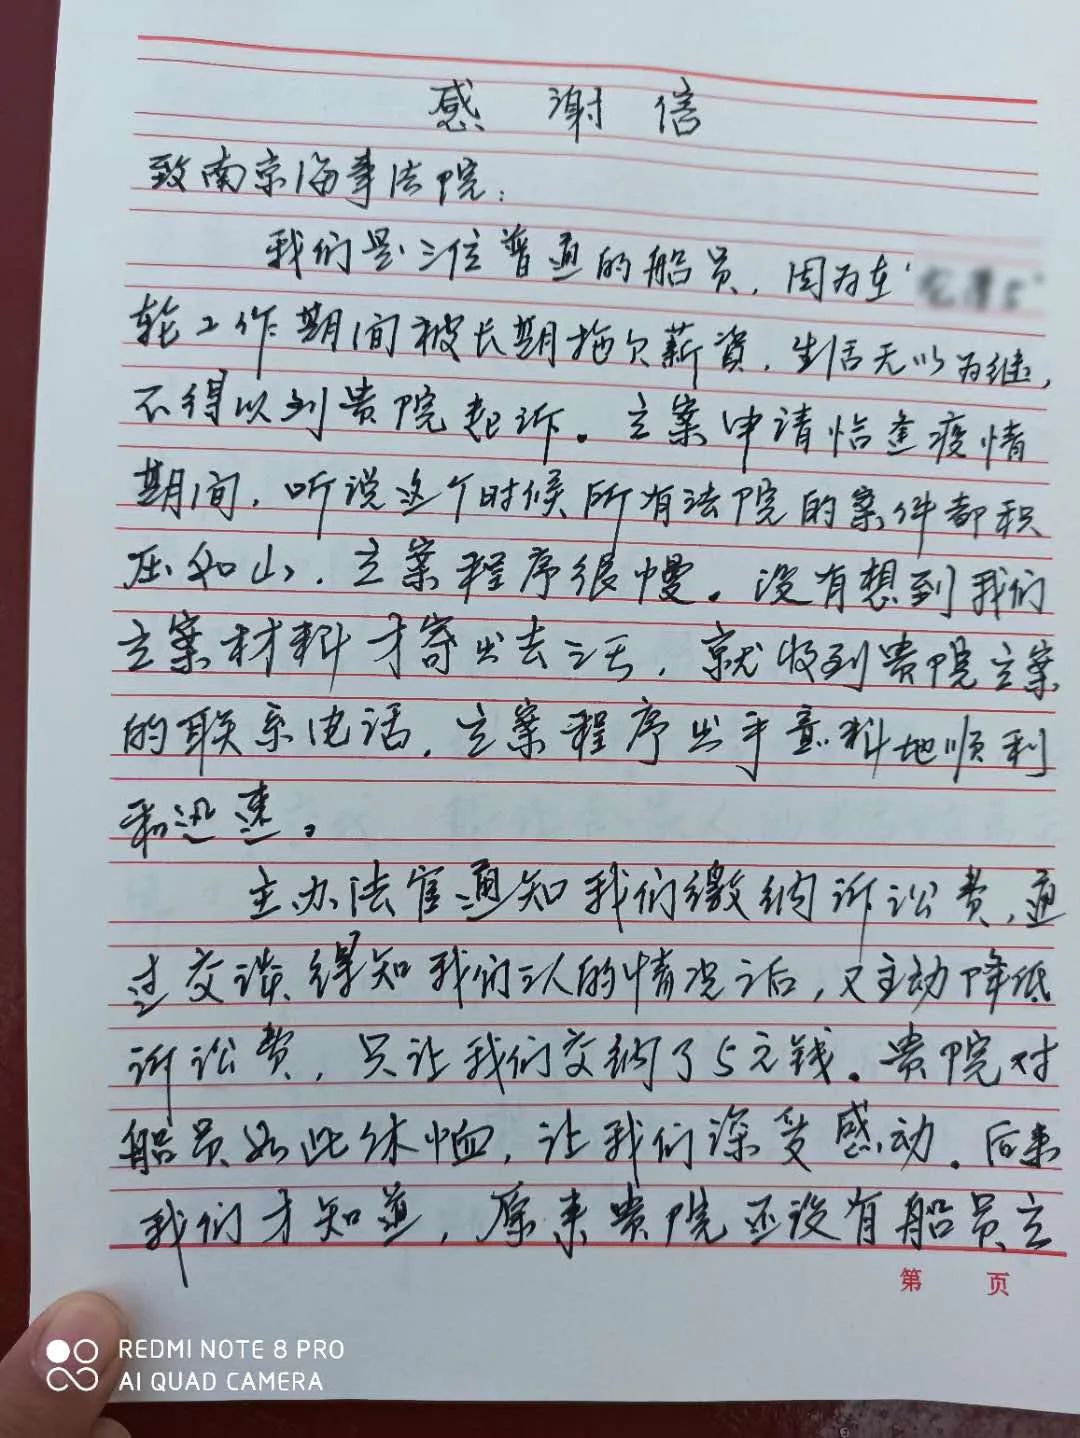 感谢信
致南京海事法院：
我们是三位普通的船员，因为在“
轮工作期间被长期拖欠薪資，生活无以为继，
不得以到贵院起诉。立案申请恰逢疫情
期间，听说这个时候所有法院的案件都积
压如山，立案程序很慢。没有想到我们
立案材料才寄出去三天，就收到贵院立案
的联系电话，立案程序出乎意料地顺利
和迅速。
主办法官通知我们缴纳诉讼费，通
过交谈得知我们三人的情况之后，又主动降低
诉讼费，只让我们交纳了5元钱。贵院对
船员如此体恤，让我们深受感动。后来
我们才知道，原来贵院还没有船员立
第 页
REDMI NOTE 8 PRO
AI QUAD CAMERA